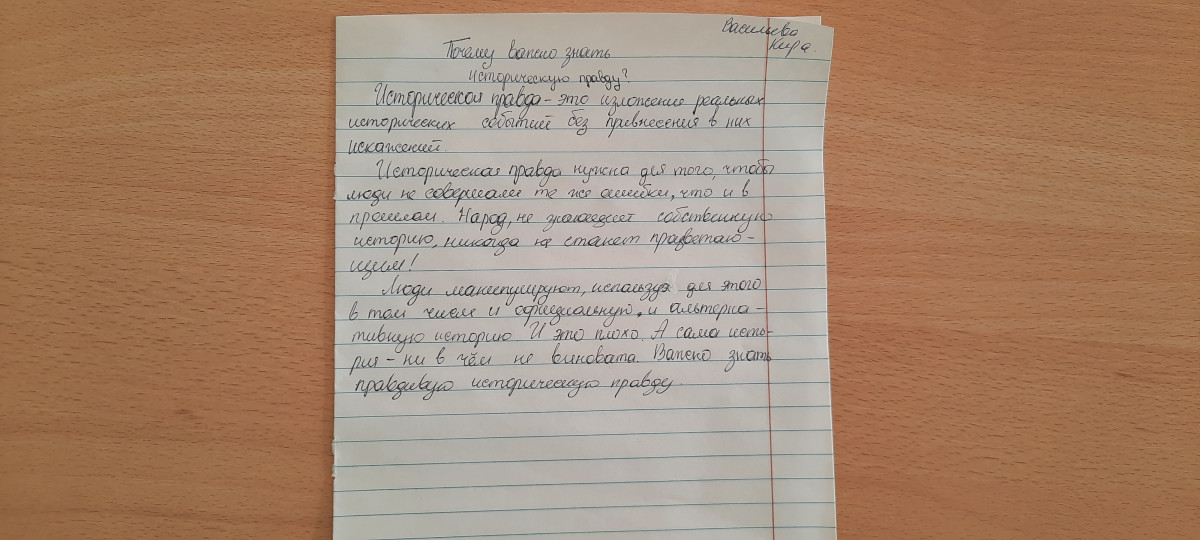 Васильева
Кира.
Почему важно знать
историческую правду?
Историческая правда - это изложение реальных
исторических событий без привнесения в них
искажений.
Историческая правда нужна для того, чтобы
люди не совершали те же ошибки, что и в
прошлом. Народ, не знающий собственную
историю, никогда не станет процветаю-
щим!
Люди манипулируют, используя для этого
в том числе и официальную, и альтерна-
тивную историю. И это плохо. А сама исто-
рия - ни в чём не виновата. Важно знать
правдивую историческую правду.